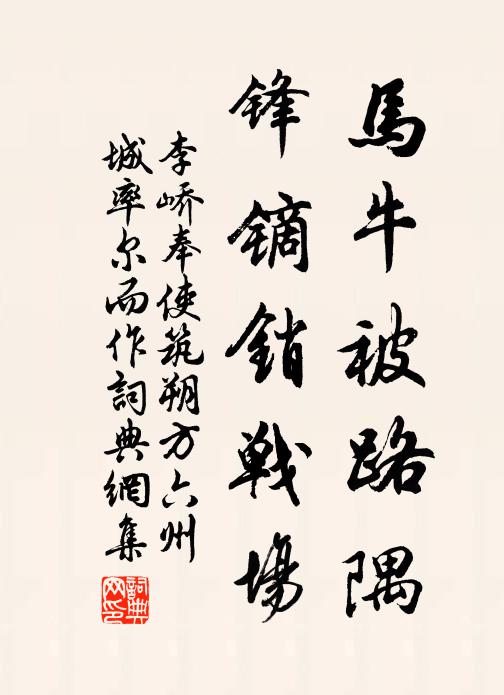 馬牛被路隅
鋒鏑銷戰場
李嶠奉使筑朔方六州
城率尔而作詞典網集
詞典网印